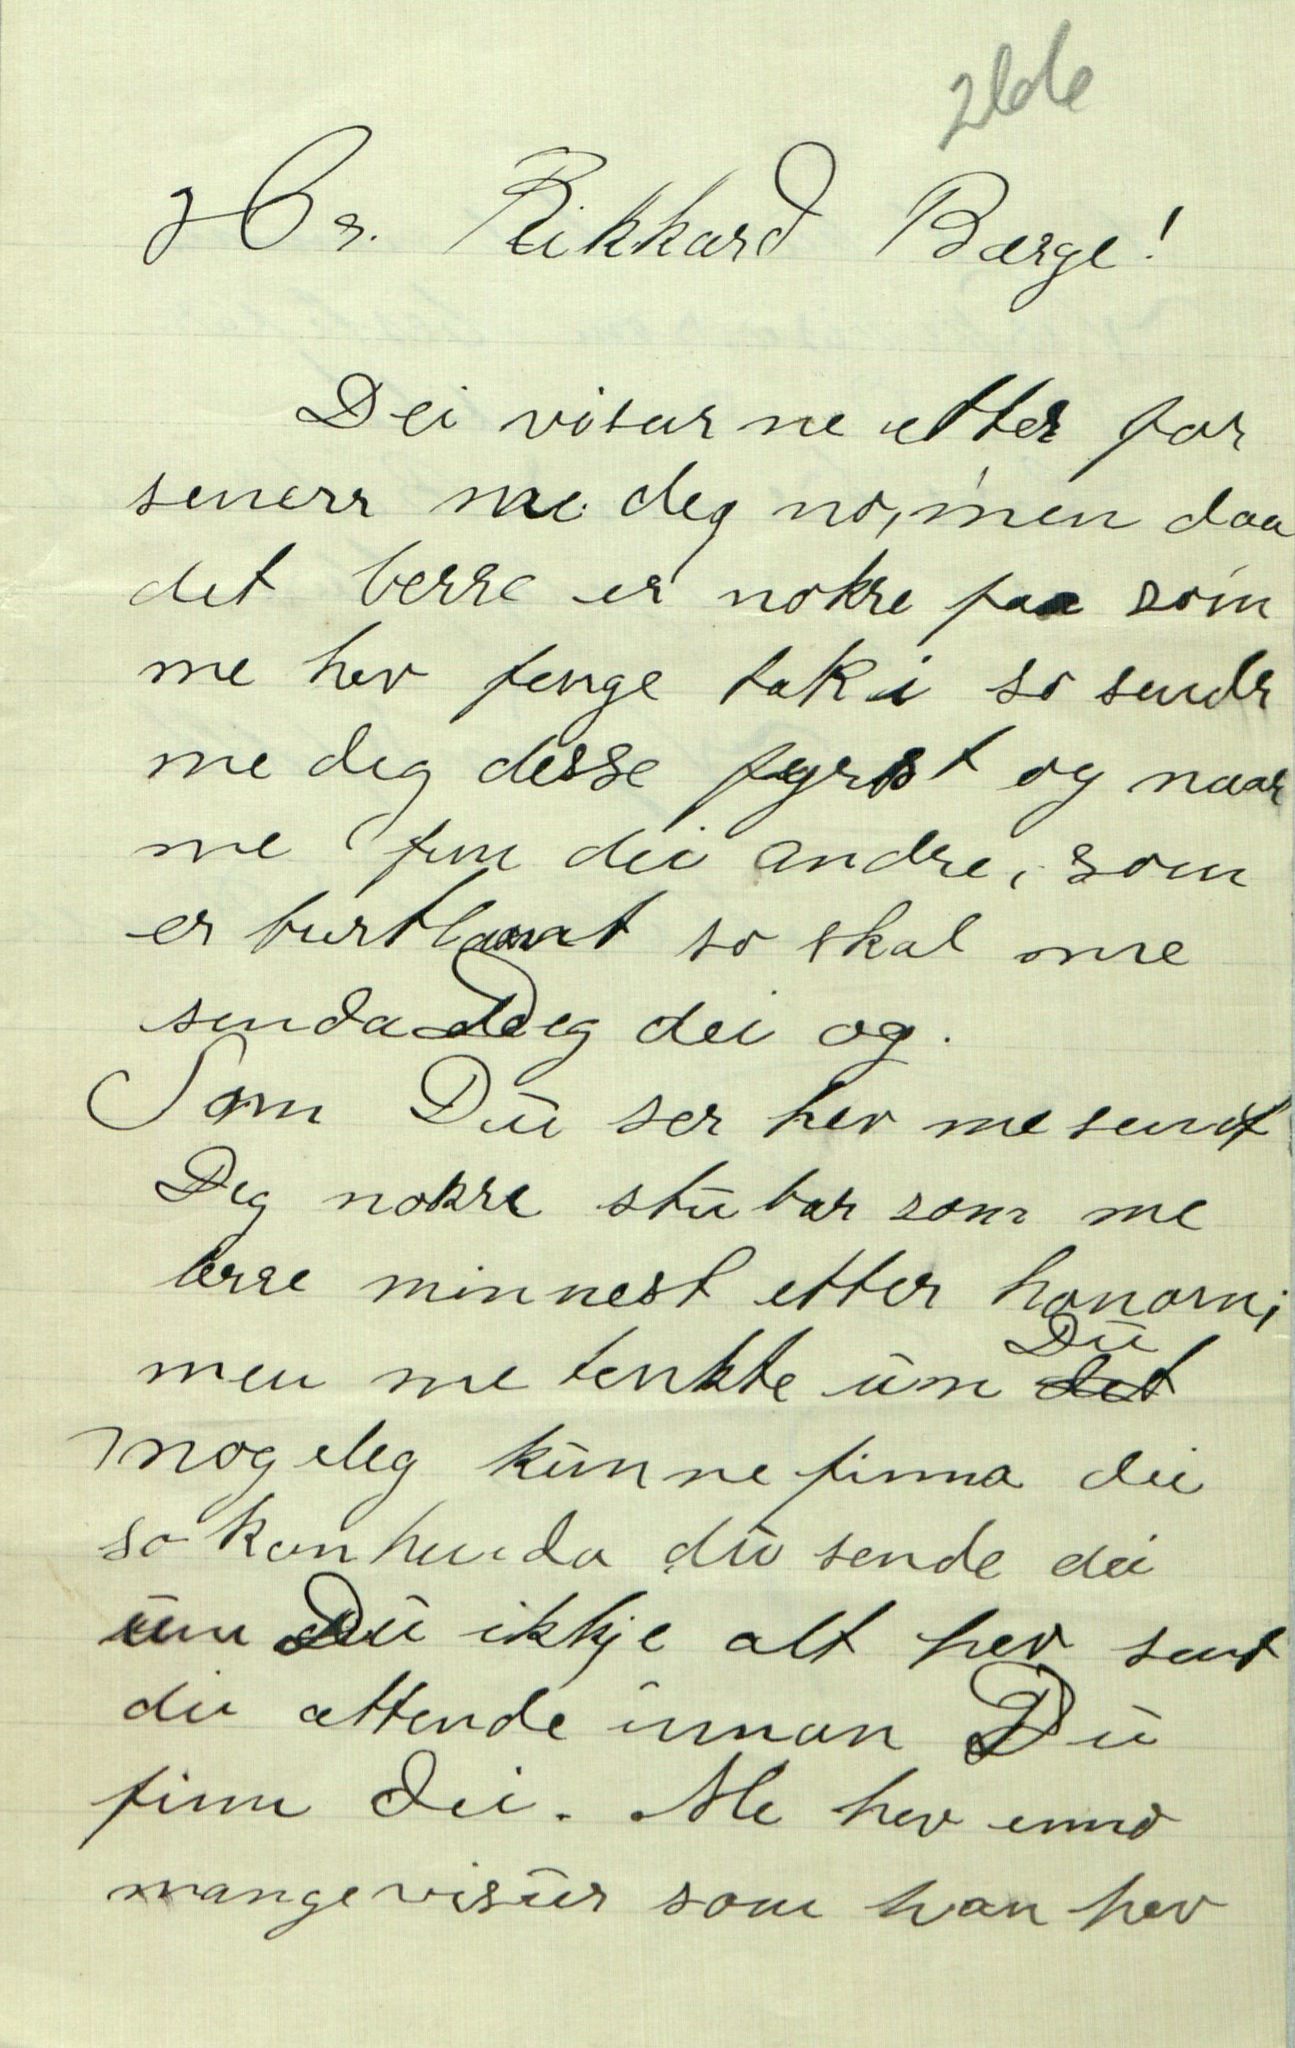 Hr. Rikkard Berge!
Dei visur ne etter far
senerr me deg no, men daa
det berre er nokre faa som
me hev fenge tak i so sendr
me deg desse fyrst og naar
me finn dei andre, som
er burtlaant so skal me
senda Deg dei og.
Som Du ser hev me sendt
Deg nokre stubar som me
berre minnest etter honom;
men me tenkte um Du det
mogeleg kunne finna dei
so kanhenda du sende dei
um Du ikkje alt hev sent
dei attende innan Du
finn dei. Me hev enno
mange visur som han hev